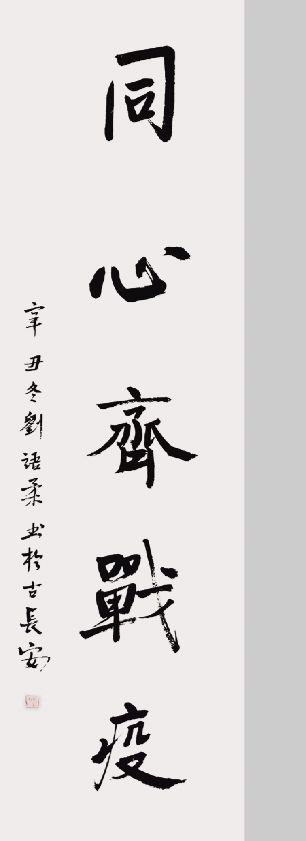 同心齊戰疫
辛丑冬劉語柔书於古長安